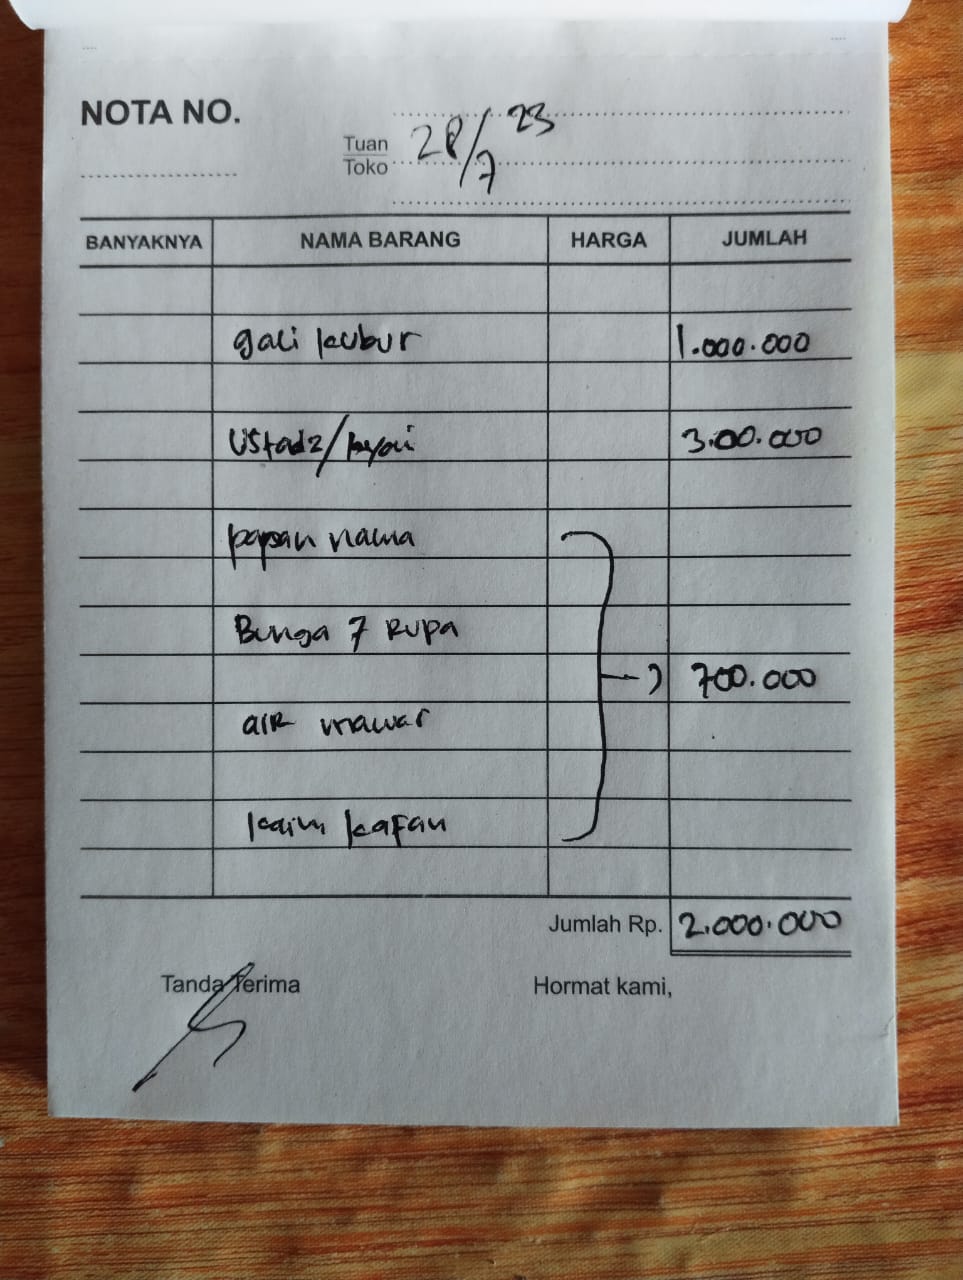 NOTA NO.
Tuan
Toko
28/7 23
BANYAKNYA NAMA BARANG HARGA JUMLAH
gali kubur 1.000.000
Ustadz/kyai 3.00.000
papan nama
Bunga 7 Rupa
700.000
air mawar
kain kafan
Jumlah Rp. 2.000.000
Tanda Terima Hormat kami,